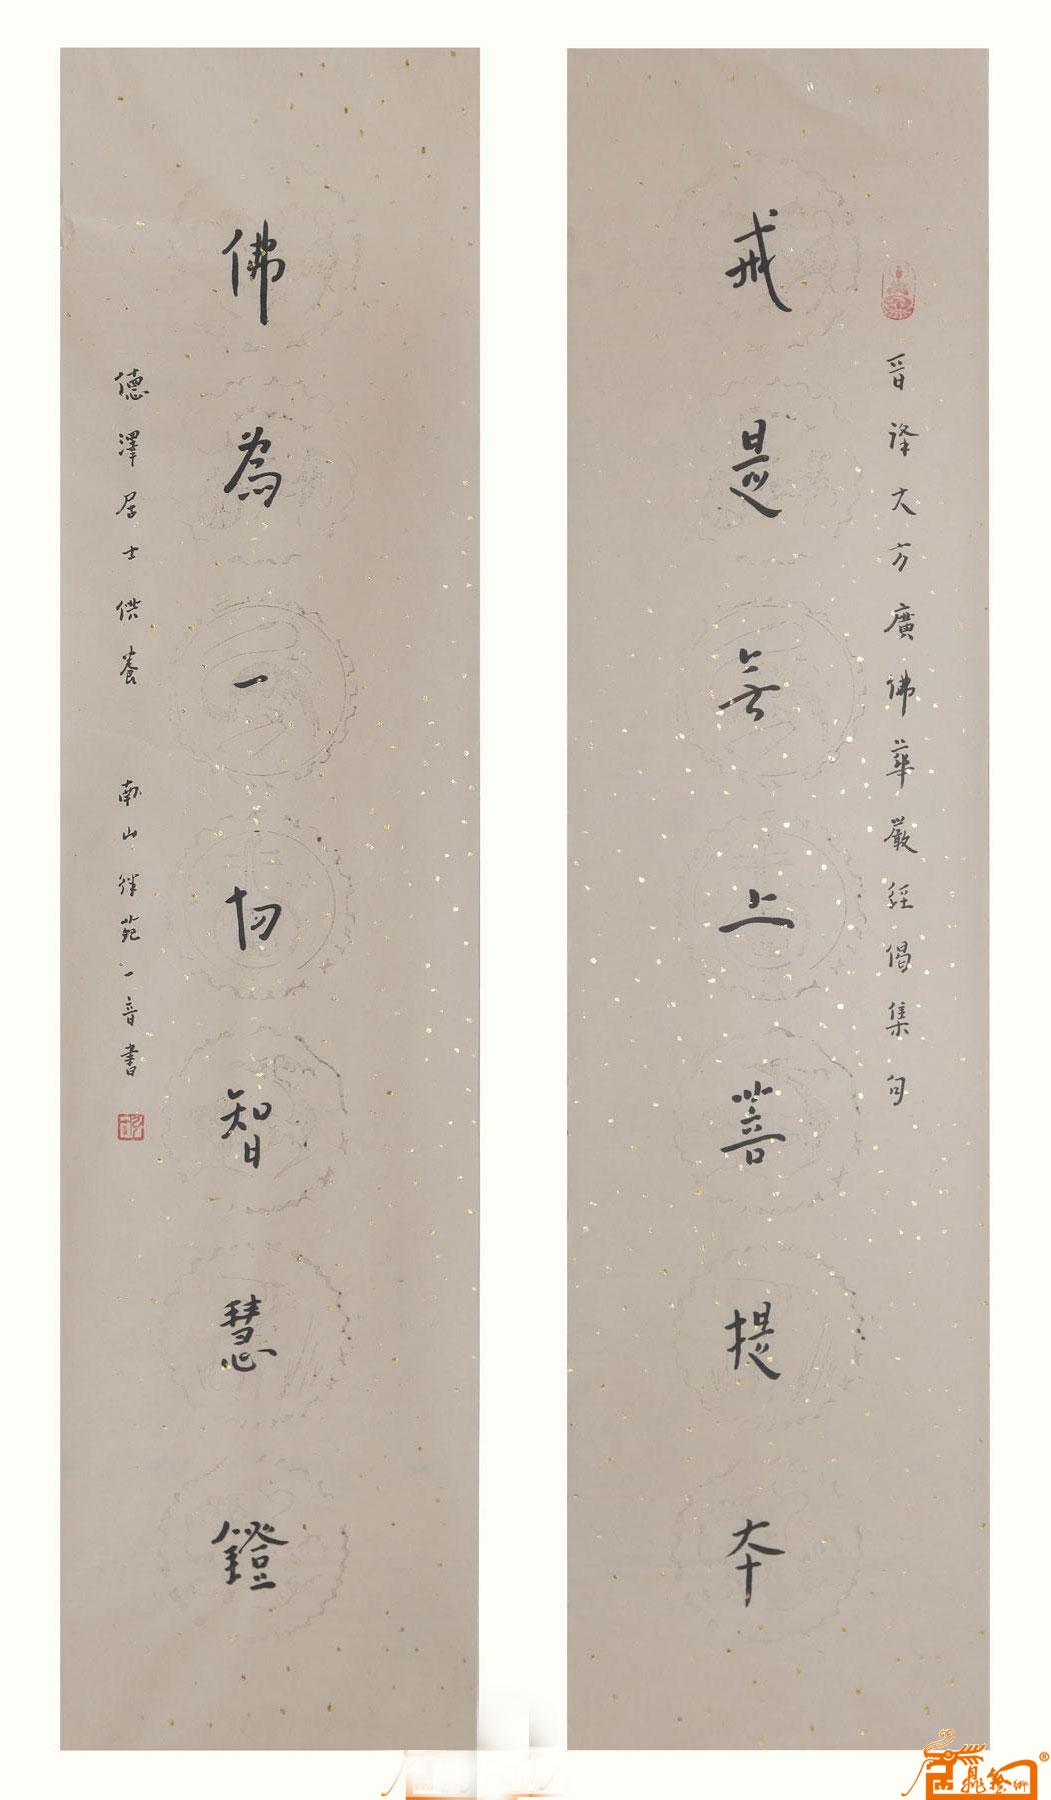 晉譯大方廣佛華嚴經偈集句
戒是无上菩提本
佛為一切智慧鐙
德澤居士供養 南山律苑一音書